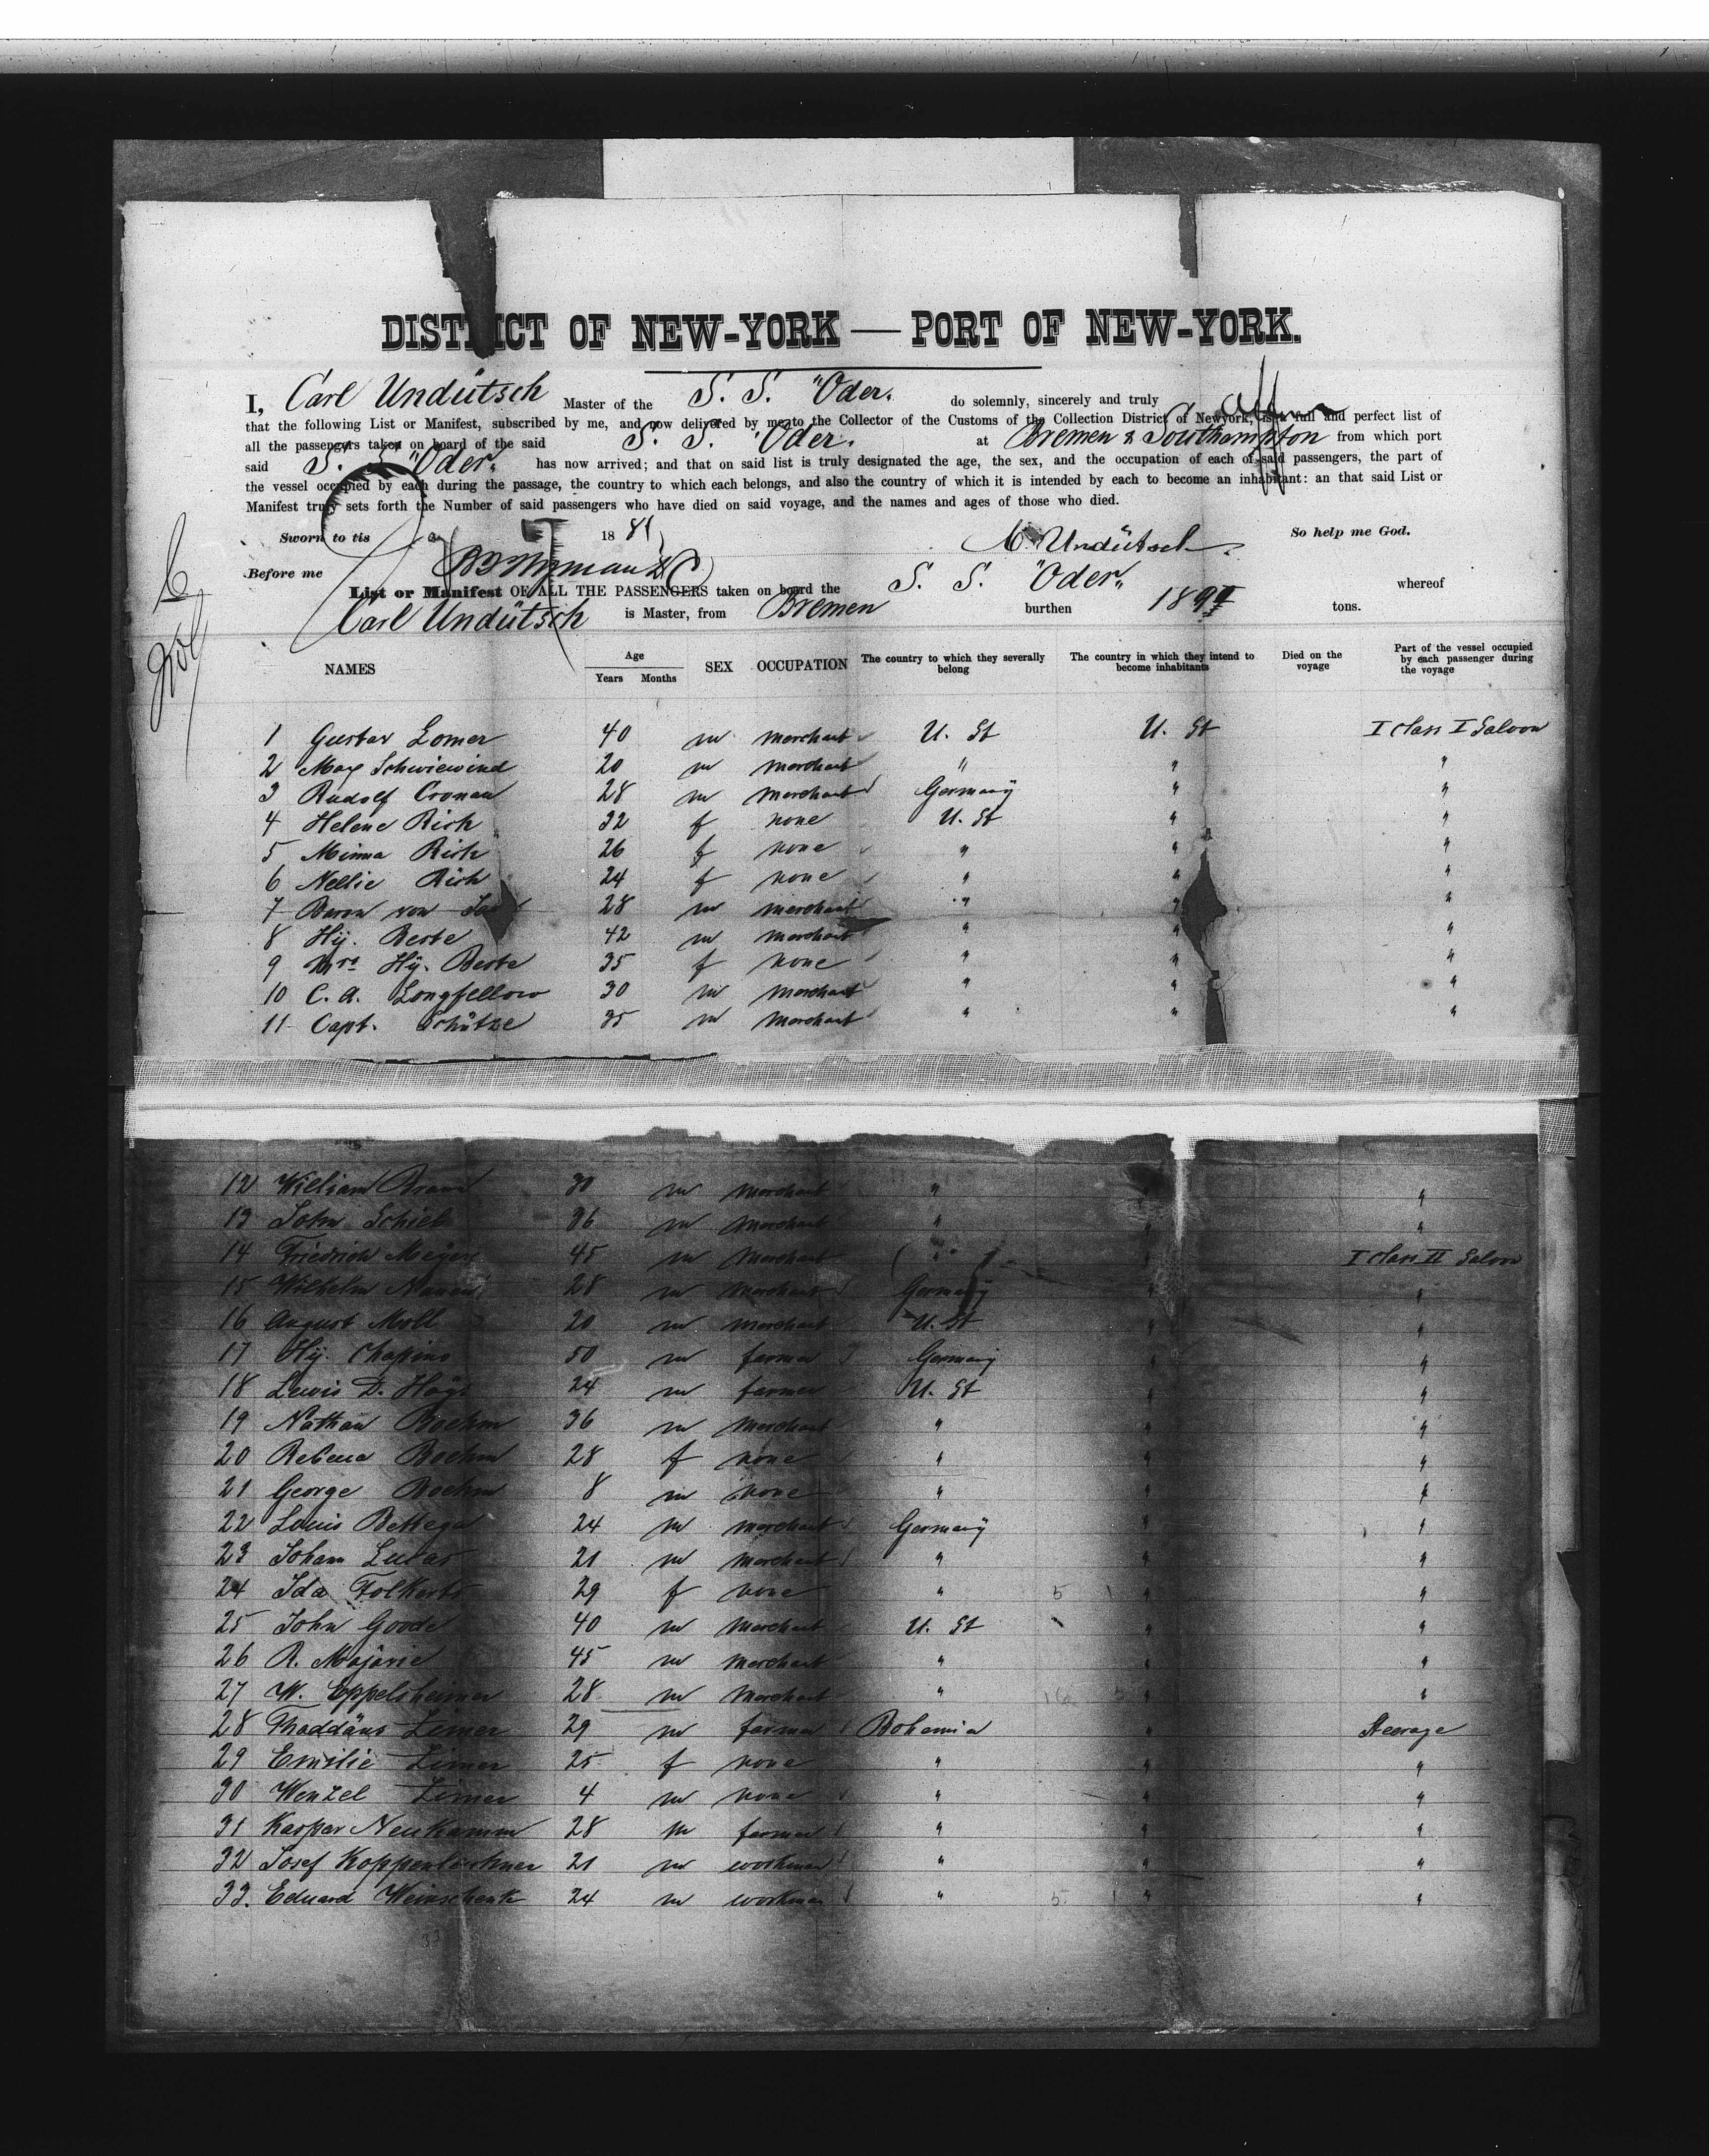 DISTRICT OF NEW-YORK — PORT OF NEW-YORK.
I, Carl Undütsch Master of the S. S. "Oder" do solemnly, sincerely and truly affirm
that the following List or Manifest, subscribed by me, and now delivered by me to the Collector of the Customs of the Collection District of Newyork, is a full and perfect list of
all the passengers taken on board of the said S. S. "Oder" at Bremen & Southampton from which port
said S. S. "Oder" has now arrived; and that on said list is truly designated the age, the sex, and the occupation of each of said passengers, the part of
the vessel occupied by each during the passage, the country to which each belongs, and also the country of which it is intended by each to become an inhabitant: an that said List or
Manifest truly sets forth the Number of said passengers who have died on said voyage, and the names and ages of those who died.
Sworn to tis 1881 C. Undütsch So help me God.
Before me
List or Manifest OF ALL THE PASSENGERS taken on board the S. S. "Oder" whereof
Carl Undütsch is Master, from Bremen burthen tons.
NAMES Age Years Months SEX OCCUPATION The country to which they severally belong The country in which they intend to become inhabitants Died on the voyage Part of the vessel occupied by each passenger during the voyage
1 Gustav Lomer 40 m merchant U. St U. St I class I Saloon
2 Max Schwiewind 20 m merchant " " "
3 Rudolf Cronau 28 m merchant Germany " "
4 Helene Rich 32 f none U. St " "
5 Minna Rich 26 f none " " "
6 Nellie Rich 24 f none " " "
7 Baron von 28 m merchant " " "
8 Hy. Beste 42 m merchant " " "
9 Mrs Hy. Beste 35 f none " " "
10 C. A. Longfellow 30 m merchant " " "
11 Capt. Schütze 35 m merchant " " "
12 William Brand 30 m merchant " "
13 John Schieb 36 m merchant " " "
14 Friedrich Meyer 45 m merchant " " I class II Saloon
15 Wilhelm 28 m merchant Germany " "
16 August Moll 20 m merchant U. St " "
17 Hy. Chapino 50 m farmer Germany " "
18 Lewis D. Hays 24 m farmer U. St " "
19 Nathan Boehm 36 m merchant " " "
20 Rebecca Boehm 28 f none " " "
21 George Boehm 8 m none " " "
22 Louis Bettega 24 m merchant Germany " "
23 Johann Lucas 21 m merchant " " "
24 Ida Folkerts 29 f none " " "
25 John Goode 40 m merchant U. St " "
26 R. Majorie 45 m merchant " " "
27 W. Eppelsheimer 28 m merchant " " "
28 Thaddäus Zimer 29 m farmer Bohemia " Steerage
29 Emilie Zimer 25 f none " " "
30 Wenzel Zimer 4 m none " " "
31 Kaspar Neukamm 28 m farmer " " "
32 Josef Koppenleitner 21 m workman " " "
33. Eduard Weinschenk 24 m workman " " "
33